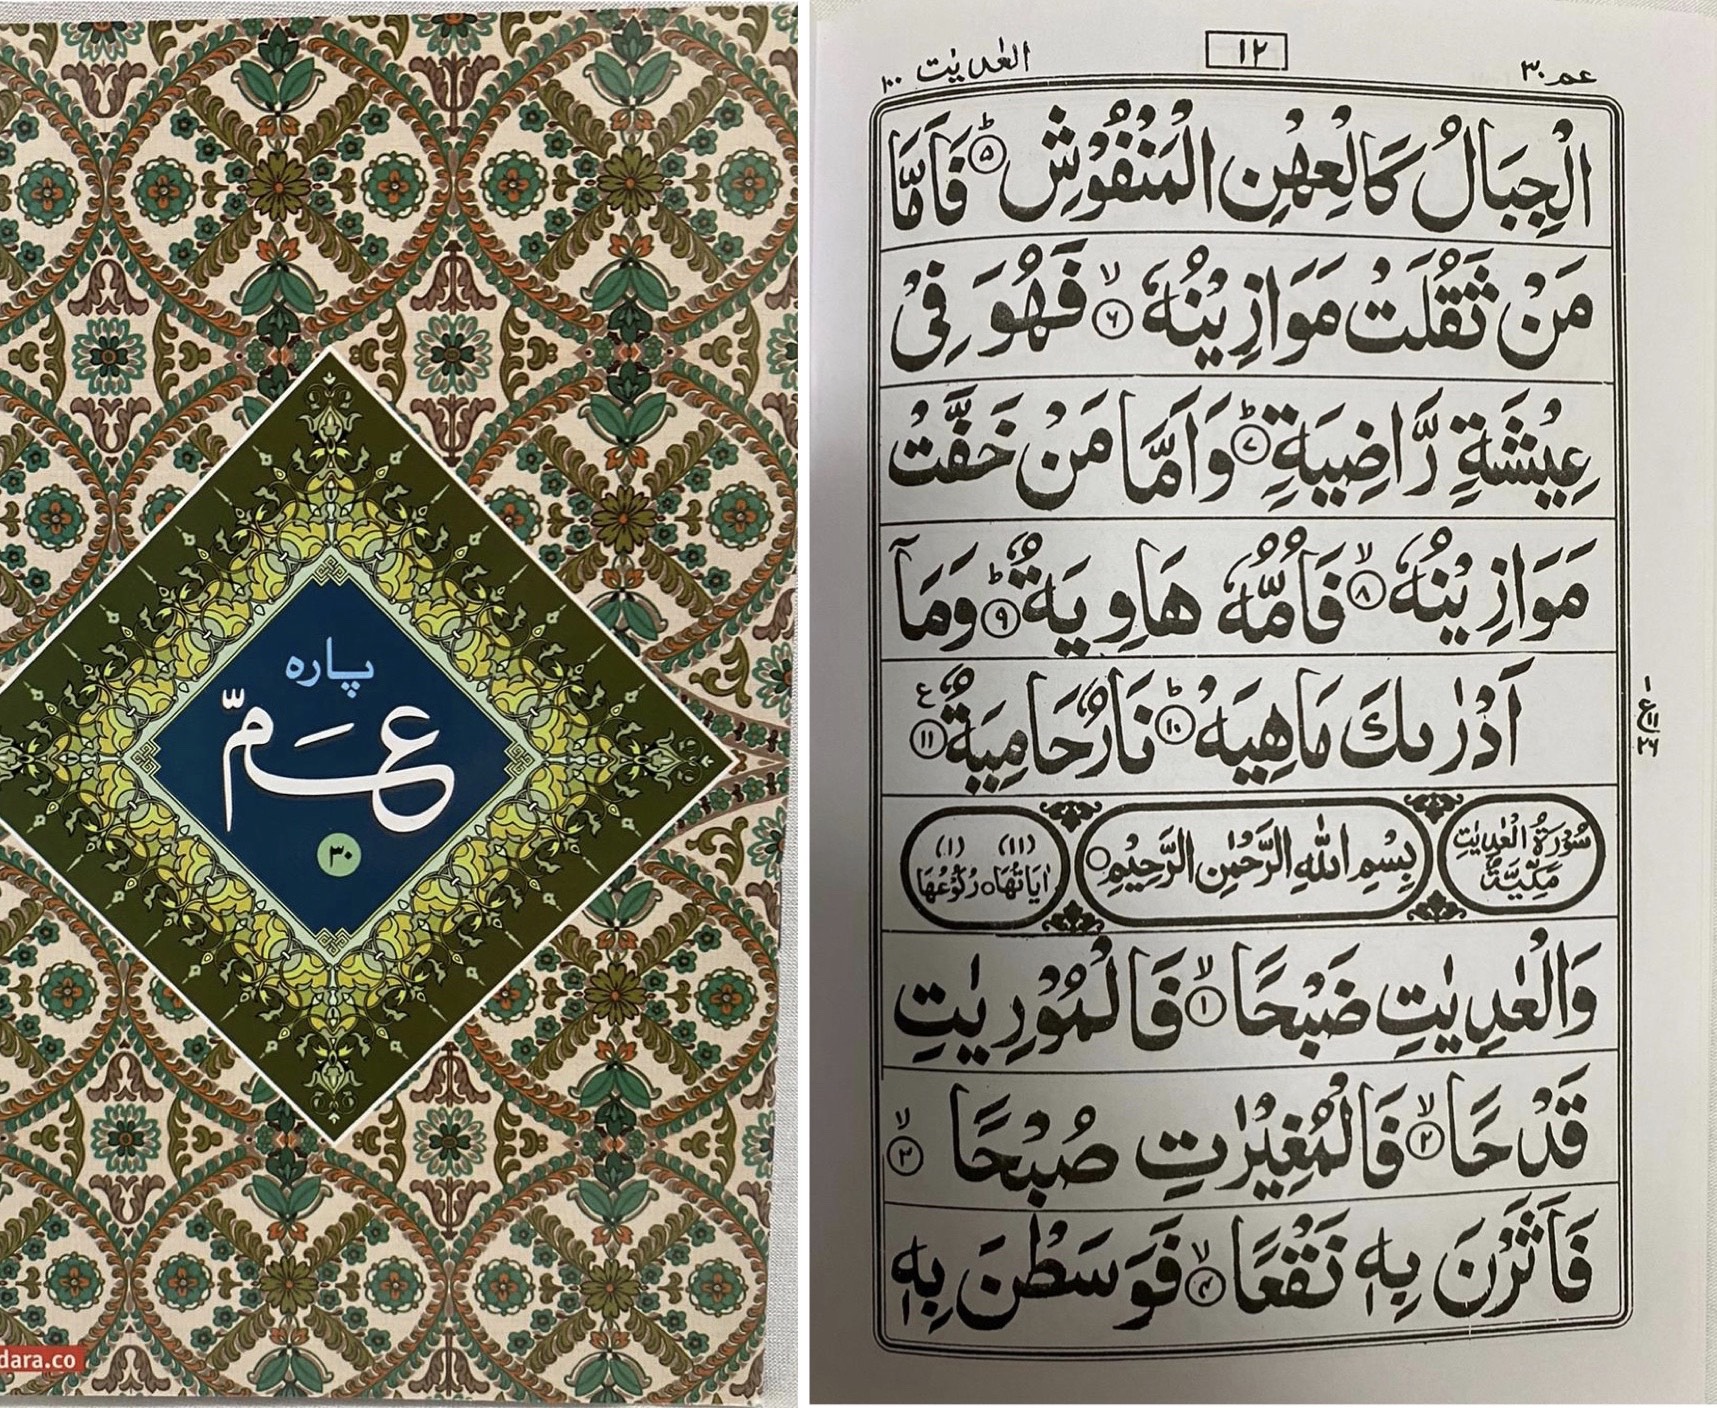 پارہ
عَمَّ
٣٠
dara.co
عم ٣٠
١٢
العٰدیٰت ١٠٠
الْجِبَالُ كَالْعِهْنِ الْمَنْفُوْشِ ۵ؕ فَاَمَّا
مَنْ ثَقُلَتْ مَوَازِيْنُهٗ ۶ۙ فَهُوَ فِيْ
عِيْشَةٍ رَّاضِيَةٍ ۷ؕ وَاَمَّا مَنْ خَفَّتْ
مَوَازِيْنُهٗ ۸ۙ فَاُمُّهٗ هَاوِيَةٌ ۹ؕ وَمَآ
اَدْرٰىكَ مَاهِيَهْ ۱۰ؕ نَارٌ حَامِيَةٌ ۱۱ع
ع ١١ ٢٦
سُوْرَةُ الْعٰدِيٰتِ مَكِّيَّةٌ
بِسْمِ اللّٰهِ الرَّحْمٰنِ الرَّحِيْمِ
(١١) اٰيَاتُهَا (١) رُكُوْعُهَا
وَالْعٰدِيٰتِ ضَبْحًا ۱ۙ فَالْمُوْرِيٰتِ
قَدْحًا ۲ۙ فَالْمُغِيْرٰتِ صُبْحًا ۳ۙ
فَاَثَرْنَ بِهٖ نَقْعًا ۴ۙ فَوَسَطْنَ بِهٖ